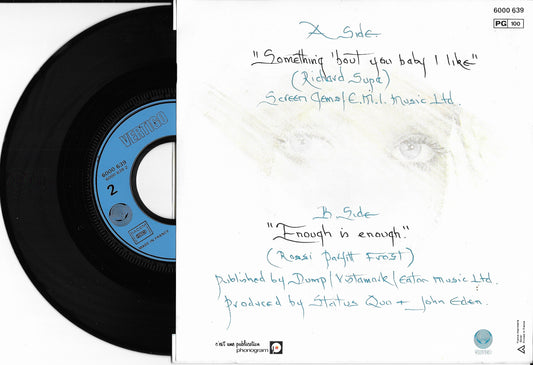 6000 639
PG 100
A Side
"Something 'bout you baby I like"
(Richard Supa)
Screen Gems/E.M.I. Music Ltd.
B Side
"Enough is enough."
(Rossi Parfitt Frost)
published by Dump/Vistamark/Eaton Music Ltd.
produced by Status Quo + John Eden.
c'est une publication
phonogram
VERTIGO
VERTIGO
6000 639
6000 639 2
2
MADE IN FRANCE